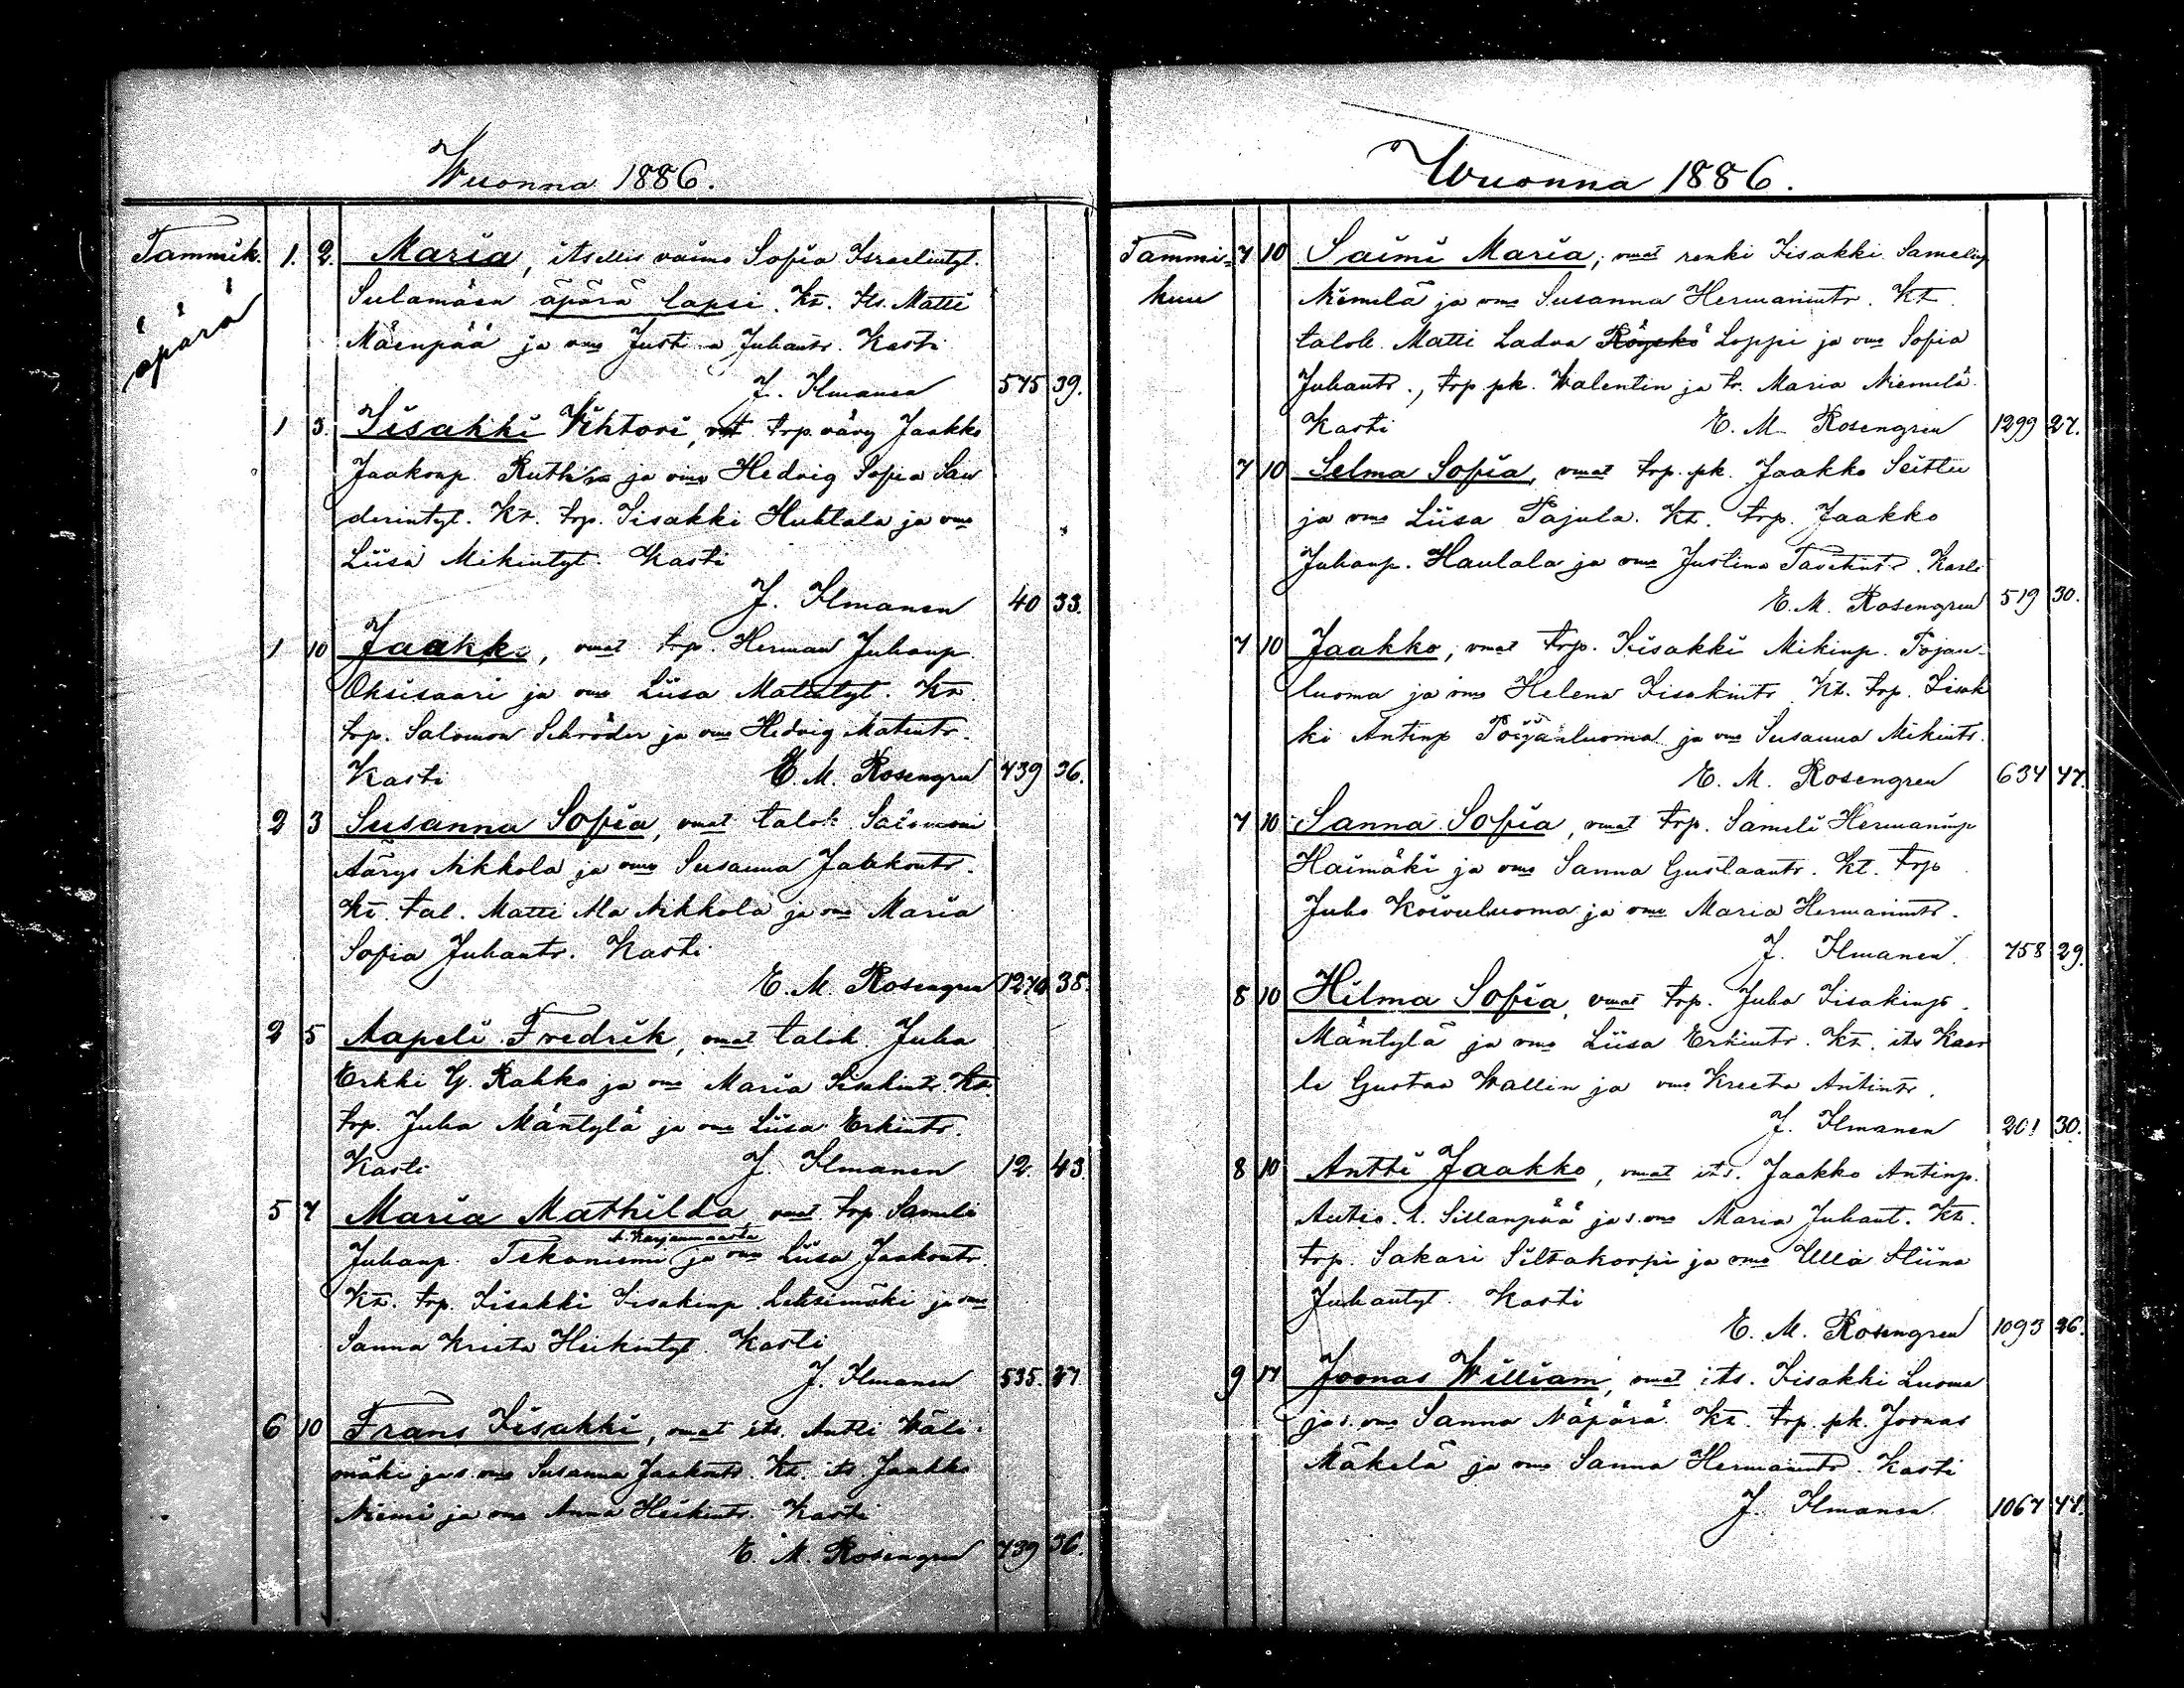 Wuonna 1886.
Tammik. 1. 2. Maria, itsellis vaimo Sofia Israelintyt.
äpärä
Sulamäen äpärä lapsi. Kt. its. Matti
Mäenpää ja vmo Justina Juhantr. Kasti
J. Ilmanen 575 39.
1 3. Iisakki Vihtori, vmat trp. väry Jaakko
Jaakonp. Ruthin ja vmo Hedvig Sofia San
derintyt. Kt. trp. Iisakki Huhtala ja vmo
Liisa Mikintyt. Kasti
J. Ilmanen 40 33.
1 10 Jaakko, vmat trp. Herman Juhanp.
Oksisaari ja vmo Liisa Matintyt. Kt.
trp. Salomon Schröder ja vmo Hedvig Matintr.
Kasti E. M. Rosengren 739 36.
2 3 Susanna Sofia, vmat talok. Salomoni
Nikkola ja vmo Susanna Jaakontr.
Kt. tal. Matti Ala Nikkola ja vmo Maria
Sofia Juhantr. Kasti
E. M. Rosengren 1270 38.
2 5 Aapeli Fredrik, vmat talok. Juha
Erkki G. Rahko ja vmo Maria Iisakintr. Kt.
trp. Juha Mäntylä ja vmo Liisa Erkintr.
Kasti J. Ilmanen 12. 43.
5 7 Maria Mathilda vmat trp Sameli
Juhanp. Tekoniemi ja vmo Liisa Jaakontr.
Kt. trp. Iisakki Iisakinp. Lehsimäki ja vmo
Sanna Kriita Heikintyt. Kasti
J. Ilmanen 535. 27
6 10 Frans Iisakki, vmat its. Antti Wäli-
mäki ja s. vmo Susanna Jaakontr. Kt. its Jaakko
Niemi ja vmo Anna Heikintr. Kasti
E. M. Rosengren 739 36.
Wuonna 1886.
Tammi- 7 10 Saimi Maria, vmat renki Iisakki Samelinp
kuu Niemelä ja vmo Susanna Hermanintr. Kt.
talok. Matti Ladva Röyskö Loppi ja vmo Sofia
Juhantr., trp. pk. Walentin ja tr. Maria Niemelä.
Kasti E. M. Rosengren 1299 27.
7 10 Selma Sofia, vmat trp. pk. Jaakko Seittu
ja vmo Liisa Pajula. Kt. trp. Jaakko
Juhanp. Haulala ja vmo Justina Tavetintr. Kasti
E. M. Rosengren 519 30.
7 10 Jaakko, vmat trp. Iisakki Mikinp. Pojan-
luoma ja vmo Helena Iisakintr. Kt. trp. Iisak
ki Antinp Pöyjanluoma ja vmo Susanna Mikintr.
E. M. Rosengren 634 47.
7 10 Sanna Sofia, vmat trp. Sameli Hermaninp
Haimäki ja vmo Sanna Gustaantr. Kt. trp
Juho Koivuluoma ja vmo Maria Hermanintr.
J. Ilmanen. 758 29.
8 10 Hilma Sofia, vmat trp. Juha Iisakinp.
Mäntylä ja vmo Liisa Erkintr. Kt. its Kaar
le Gustaa Wallin ja vmo Kreeta Antintr.
J. Ilmanen 201 30.
8 10 Antti Jaakko, vmat its. Jaakko Antinp.
Autio. l. Sillanpää ja s. vmo Maria Juhant. Kt.
trp. Sakari Siltakorpi ja vmo Ulla Stiina
Juhantyt. Kasti
E. M. Rosengren 1093 26.
9 17 Joonas William, vmat its. Iisakki Luoma
ja s. vmo Sanna Näpärä. Kt. trp. pk. Joonas
Mäkelä ja vmo Sanna Hermanintr. Kasti
J. Ilmanen. 1067 47.